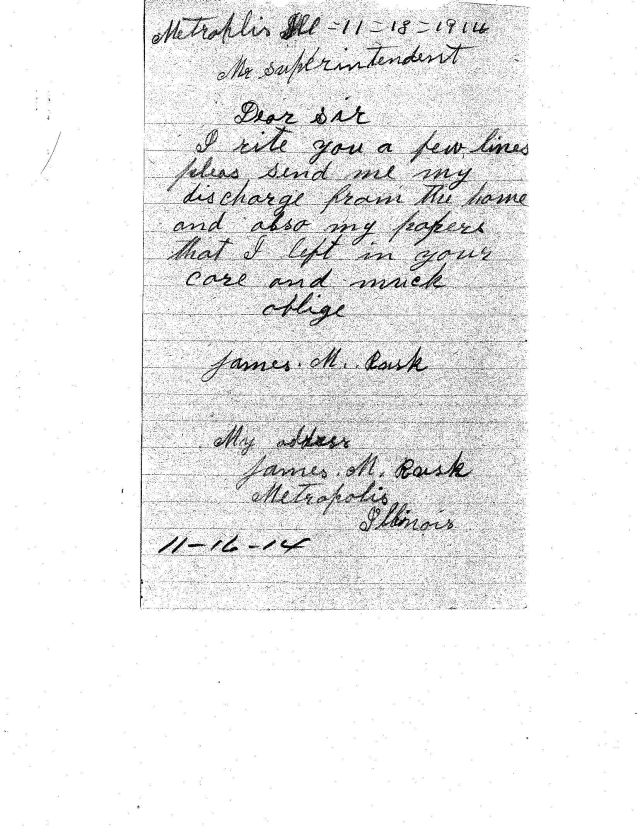 Metroplis Ill - 11 = 18 = 1914
Mr superintendent
Dear sir
I rite you a few lines
pleas send me my
discharge from the home
and also my papers
that I left in your
care and much
oblige
James. M. Rusk
My address
James. M. Rusk
Metropolis
Illinois
11-16-14